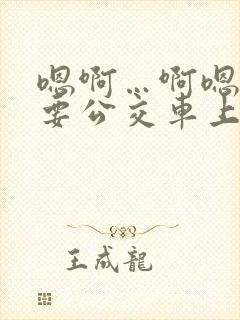 嗯啊…啊嗯
要公交车上
王成龍